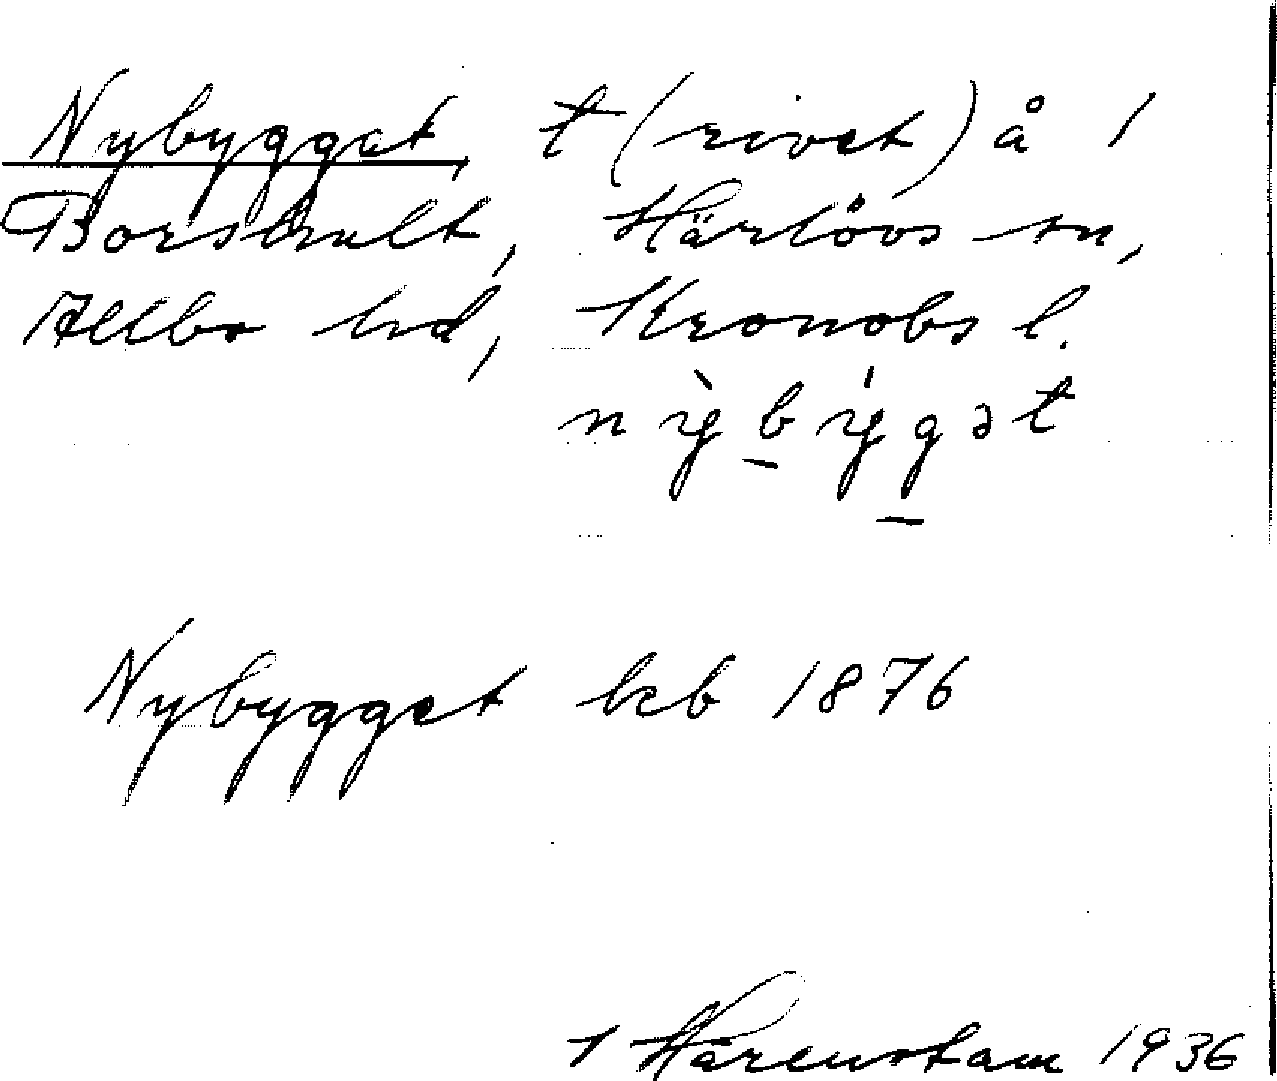 Nybygget, t (rivet) å 1
Borshult, Härlövs sn,
Allbo hd, Kronobs l.
nỳbýgət
Nybygget kb 1876
Härenstam 1936